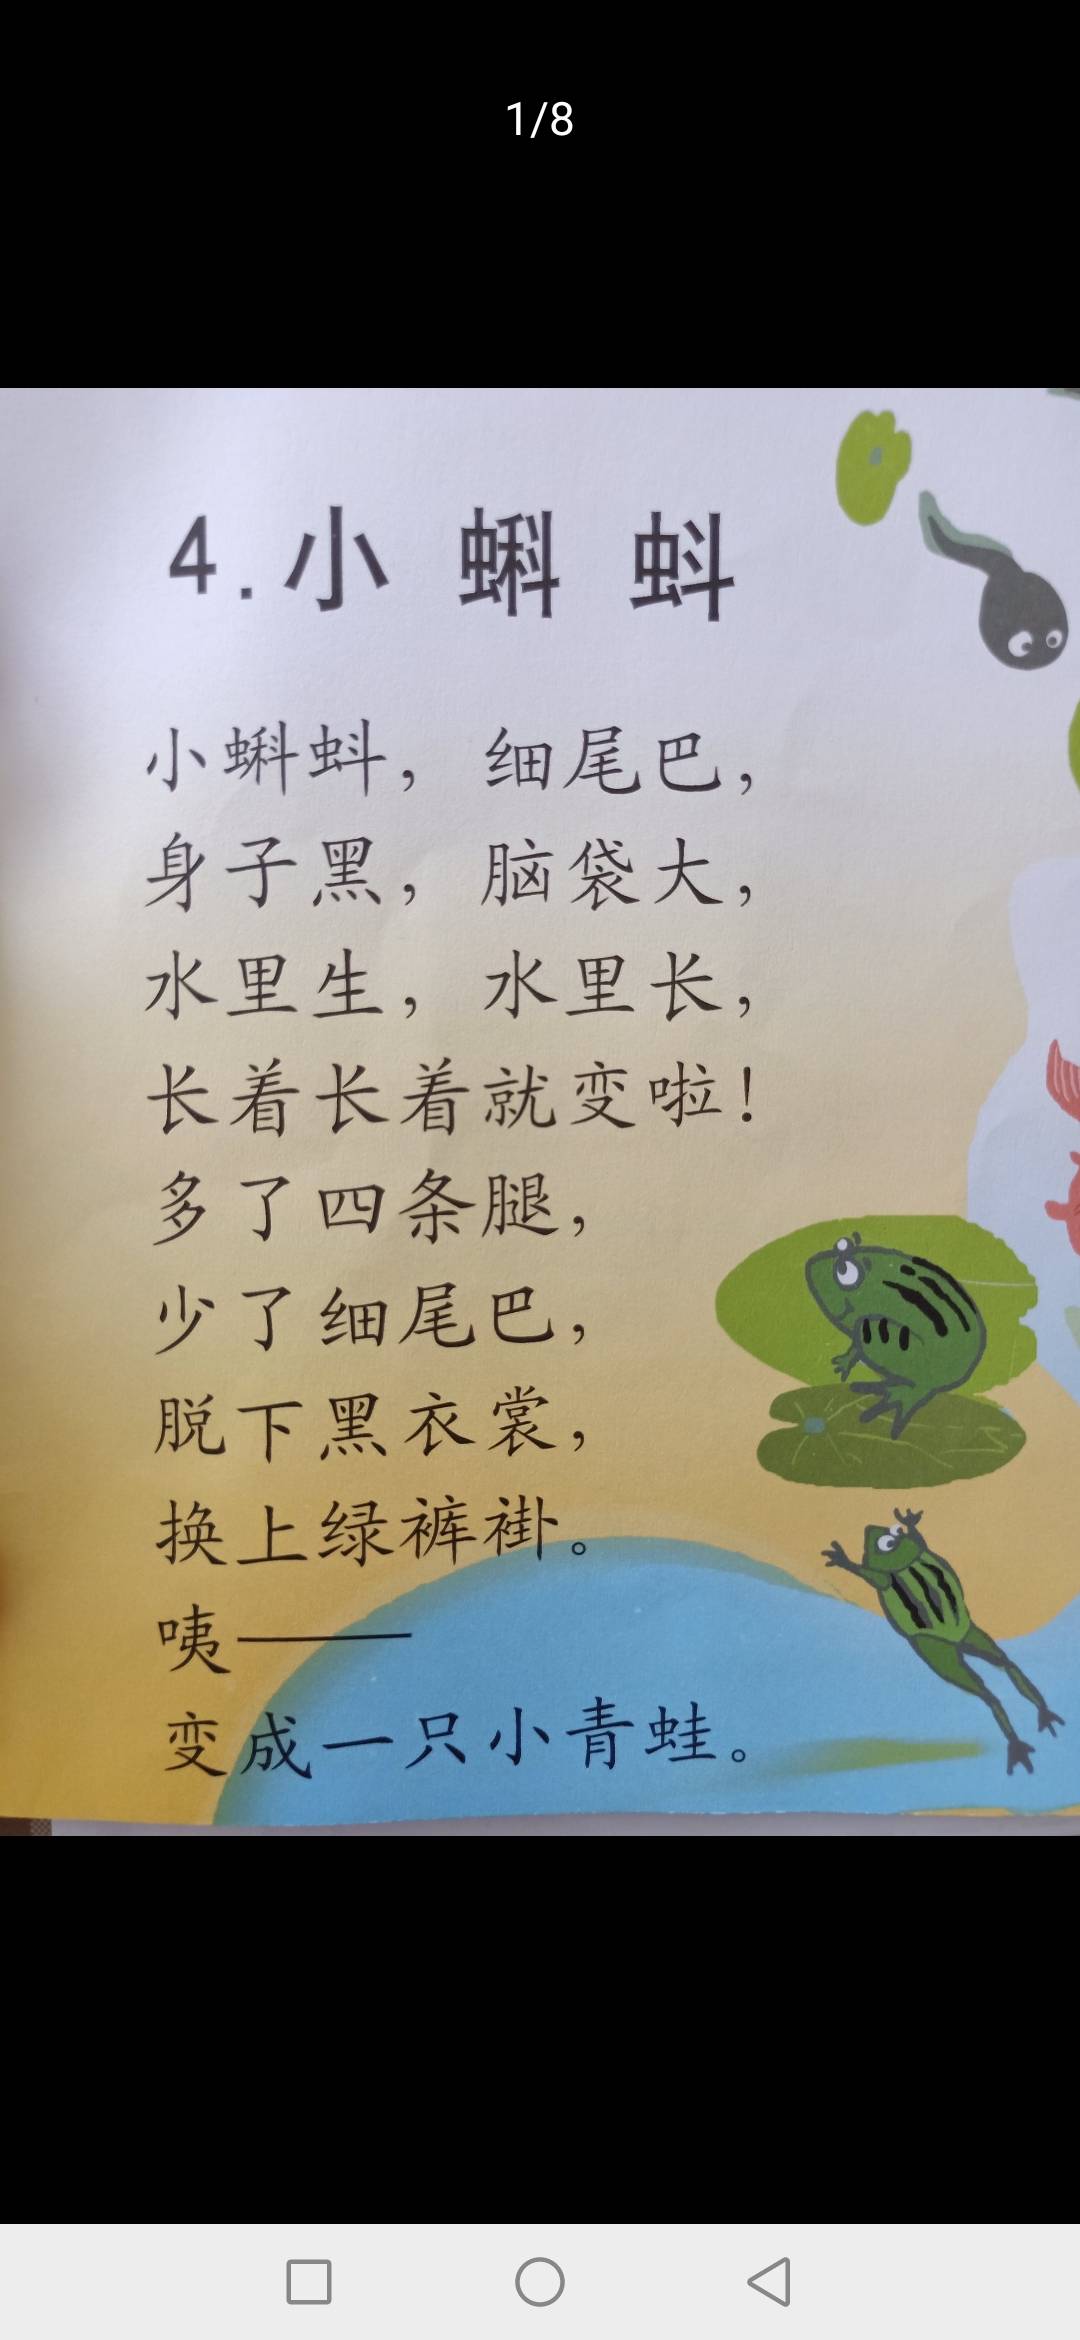 1/8
4.小蝌蚪
小蝌蚪，细尾巴，
身子黑，脑袋大，
水里生，水里长，
长着长着就变啦！
多了四条腿，
少了细尾巴，
脱下黑衣裳，
换上绿裤褂。
咦——
变成一只小青蛙。